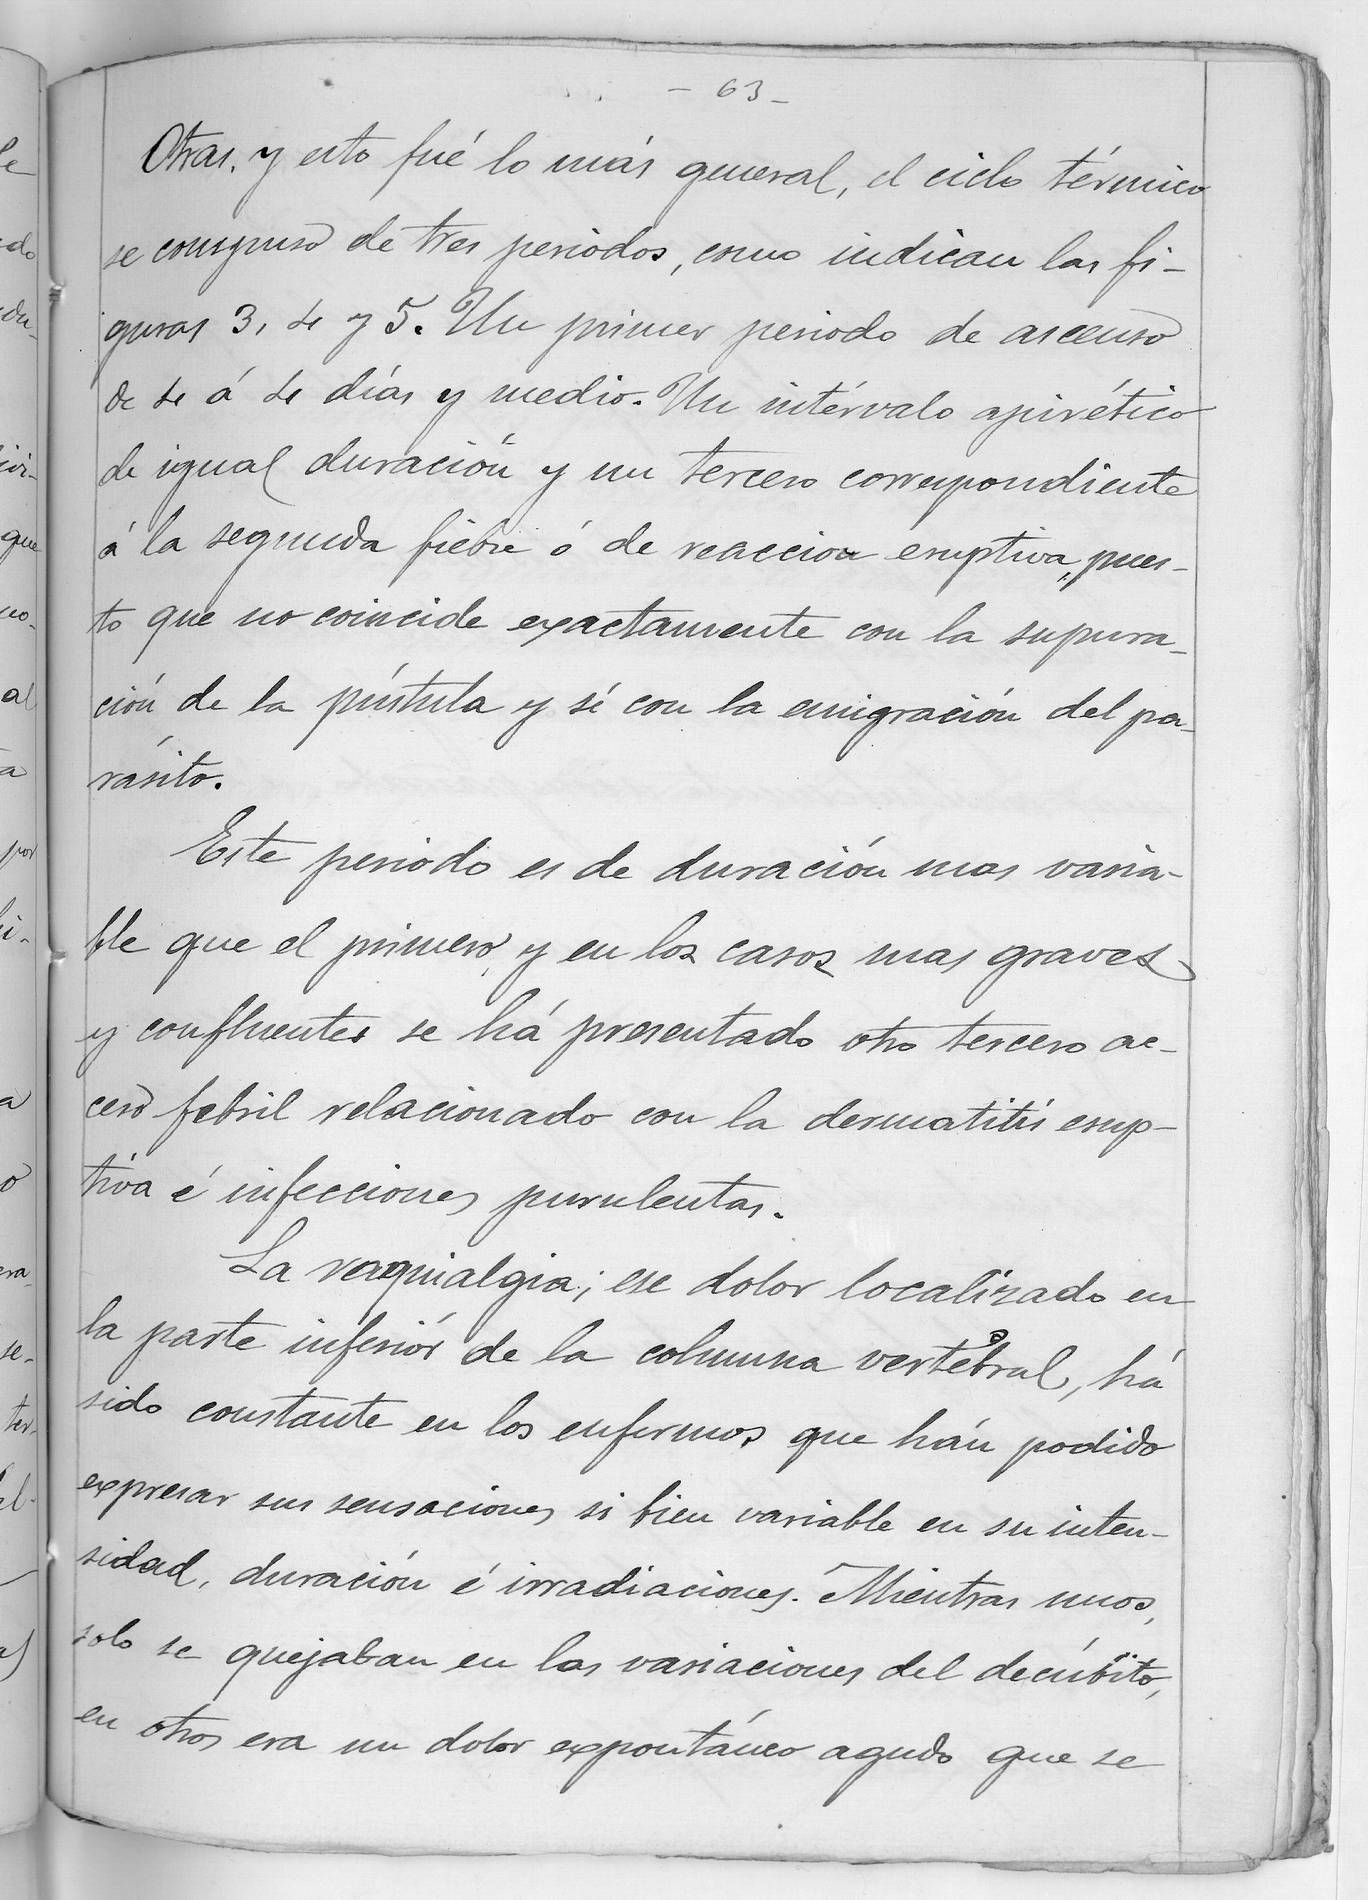 - 63 -
Otras, y esto fué lo más general, el ciclo térmico
se compuso de tres periodos, como indican las fi-
guras 3, 4 y 5. Un primer periodo de ascenso
de 4 á 4 días y medio. Un intérvalo apirético
de igual duración y un tercero correspondiente
á la segunda fiebre ó de reaccion eruptiva, pues-
to que no coincide exactamente con la supura-
ción de la pústula y sí con la emigración del pa-
rásito.
Este periodo es de duración mas varia-
ble que el primero, y en los casos mas graves
y confluentes se há presentado otro tercero ac-
ceso febril relacionado con la dermatitis erup-
tiva é infecciones purulentas.
La raquialgia; ese dolor localizado en
la parte inferiór de la columna vertebral, há
sido constante en los enfermos que hán podido
expresar sus sensaciones si bien variable en su inten-
sidad, duración é irradiaciones. Mientras unos,
solo se quejaban en las variaciones del decúbito,
en otros era un dolor expontáneo agudo que se